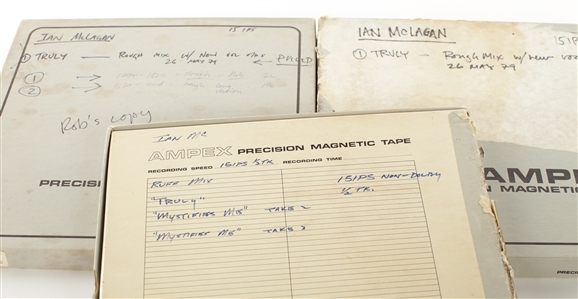 IAN McLAGAN 15 IPS
① TRULY — ROUGH MIX W/ NEW
26 MAY 79
①
②
Rob's copy
PRECIS
IAN McLAGAN 15IPS
① TRULY — ROUGH MIX W/ NEW
26 MAY 79
AMPEX
PRECISION MAGNETIC
Ian Mc
AMPEX PRECISION MAGNETIC TAPE
RECORDING SPEED 15IPS ½TR RECORDING TIME
RUFF MIX 15IPS NON-DOLBY
"TRULY" ½ TR.
"MYSTIFIES ME" TAKE 2
"MYSTIFIES ME" TAKE 3